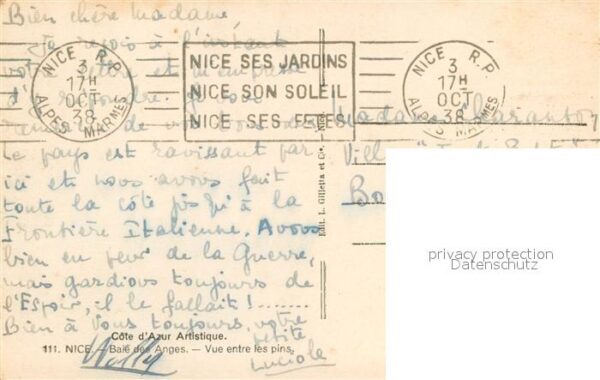 Bien chère Madame,
Je reçois à l'instant
votre lettre et m'empresse
d'y répondre. Je vous
de vos bons
le pays est ravissant par
ici et nous avons fait
toute la côte jusqu'à la
Frontière Italienne. Avons
bien eu peur de la Guerre,
mais gardions toujours de
l'Espoir, il le fallait! ........
Bien à Vous toujours, votre
petite
Luciole
Wolly
NICE R.P.
3
17H
OCT
38
ALPES MARMES
NICE SES JARDINS
NICE SON SOLEIL
NICE SES FETES
NICE R.P.
3
17H
OCT
38
ALPES MARMES
Madame
Villa
Edit. L. Gilletta et Cie, Nice
Côte d'Azur Artistique.
111. NICE. — Baie des Anges. — Vue entre les pins.
privacy protection
Datenschutz